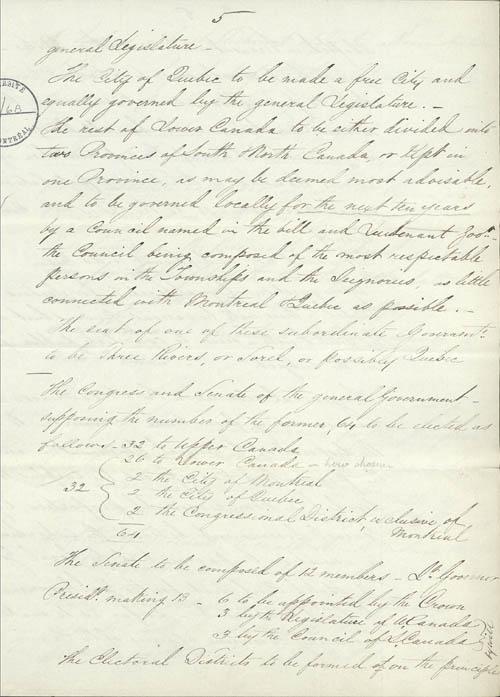 5
general Legislature -
The City of Quebec to be made a free City and
equally governed by the general Legislature. -
The rest of Lower Canada to be either divided into
two Provinces of South & North Canada, or kept in
one Province, as may be deemed most advisable,
and to be governed locally for the next ten years
by a Council named in the bill and Lieutenant Govr.
the Council being composed of the most respectable
persons in the Townships and the Seignories, as little
connected with Montreal & Quebec as possible. -
The seat of one of these subordinate Governmts.
to be Three Rivers, or Sorel, or possibly Quebec
The Congress and Senate of the general Government -
supposing the number of the former, 64 to be elected as
follows - 32 to Upper Canada
26 to Lower Canada - how chosen
32 2 the City of Montreal
2 the City of Quebec
2 the Congressional District, exclusive of
Montreal
64
The Senate to be composed of 12 members - Governor
Presidt. making 13 - 6 to be appointed by the Crown
3 by the Legislature of U. Canada
3 by the Council of L. Canada
The Electoral Districts to be formed of on the principle